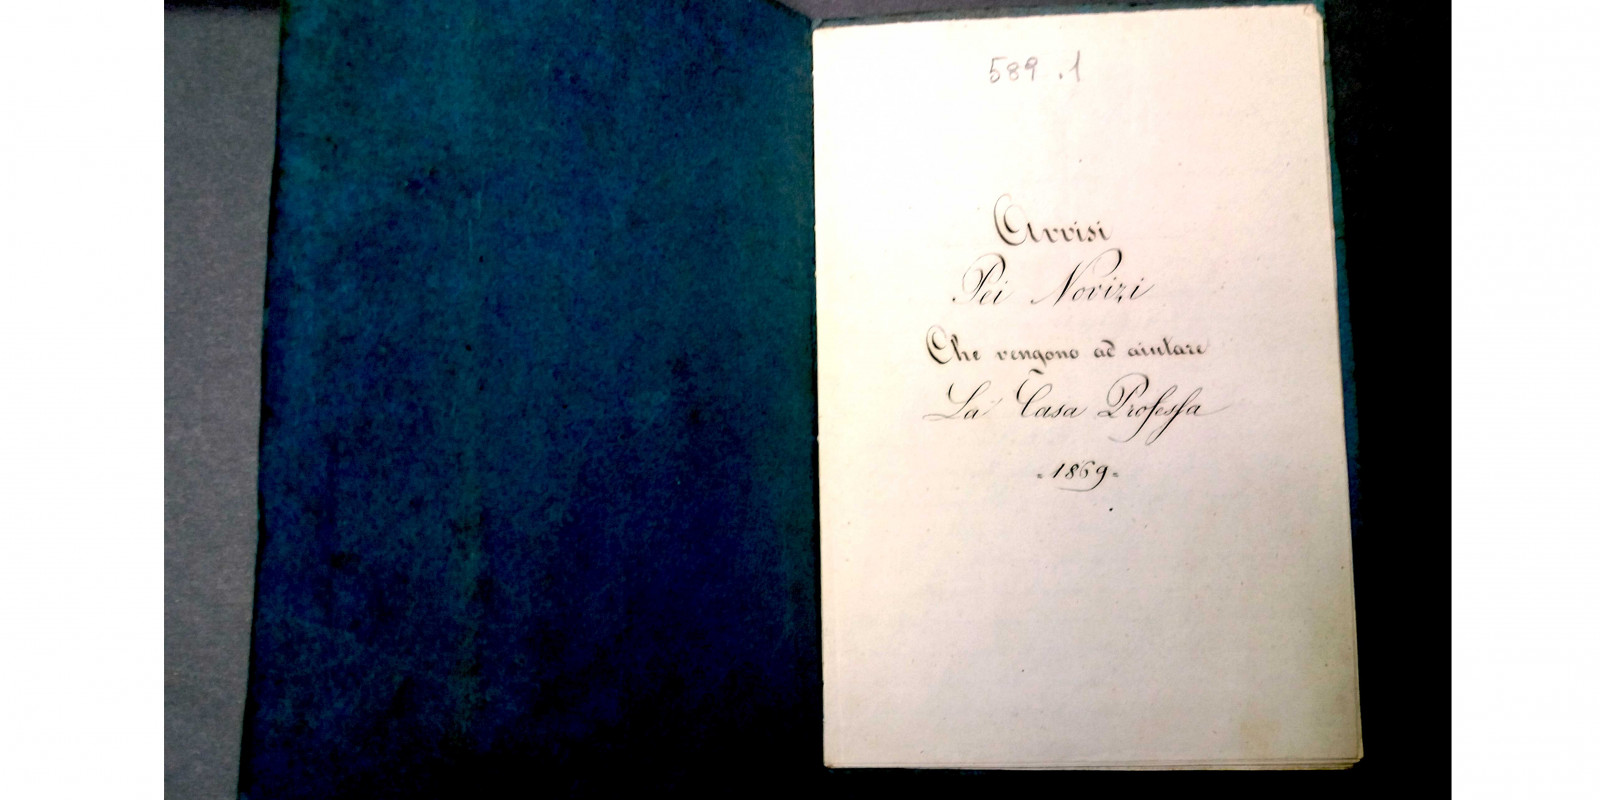 589.1
Avvisi
Pei Novizi
Che vengono ad aiutare
La Casa Professa
1869